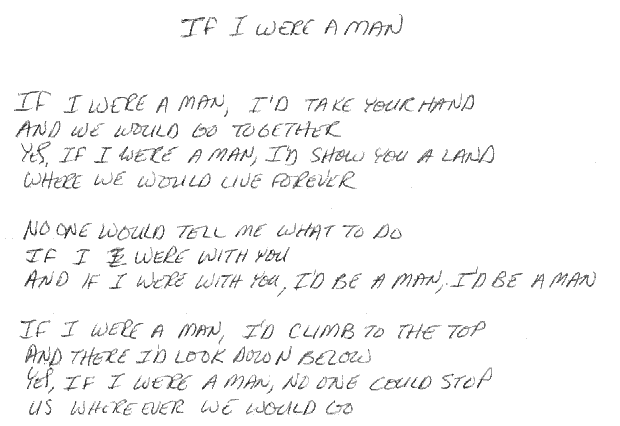 IF I WERE A MAN
IF I WERE A MAN, I'D TAKE YOUR HAND
AND WE WOULD GO TOGETHER
YES, IF I WERE A MAN, I'D SHOW YOU A LAND
WHERE WE WOULD LIVE FOREVER
NO ONE WOULD TELL ME WHAT TO DO
IF I WERE WITH YOU
AND IF I WERE WITH YOU, I'D BE A MAN, I'D BE A MAN
IF I WERE A MAN, I'D CLIMB TO THE TOP
AND THERE I'D LOOK DOWN BELOW
YES, IF I WERE A MAN, NO ONE COULD STOP
US WHERE EVER WE WOULD GO